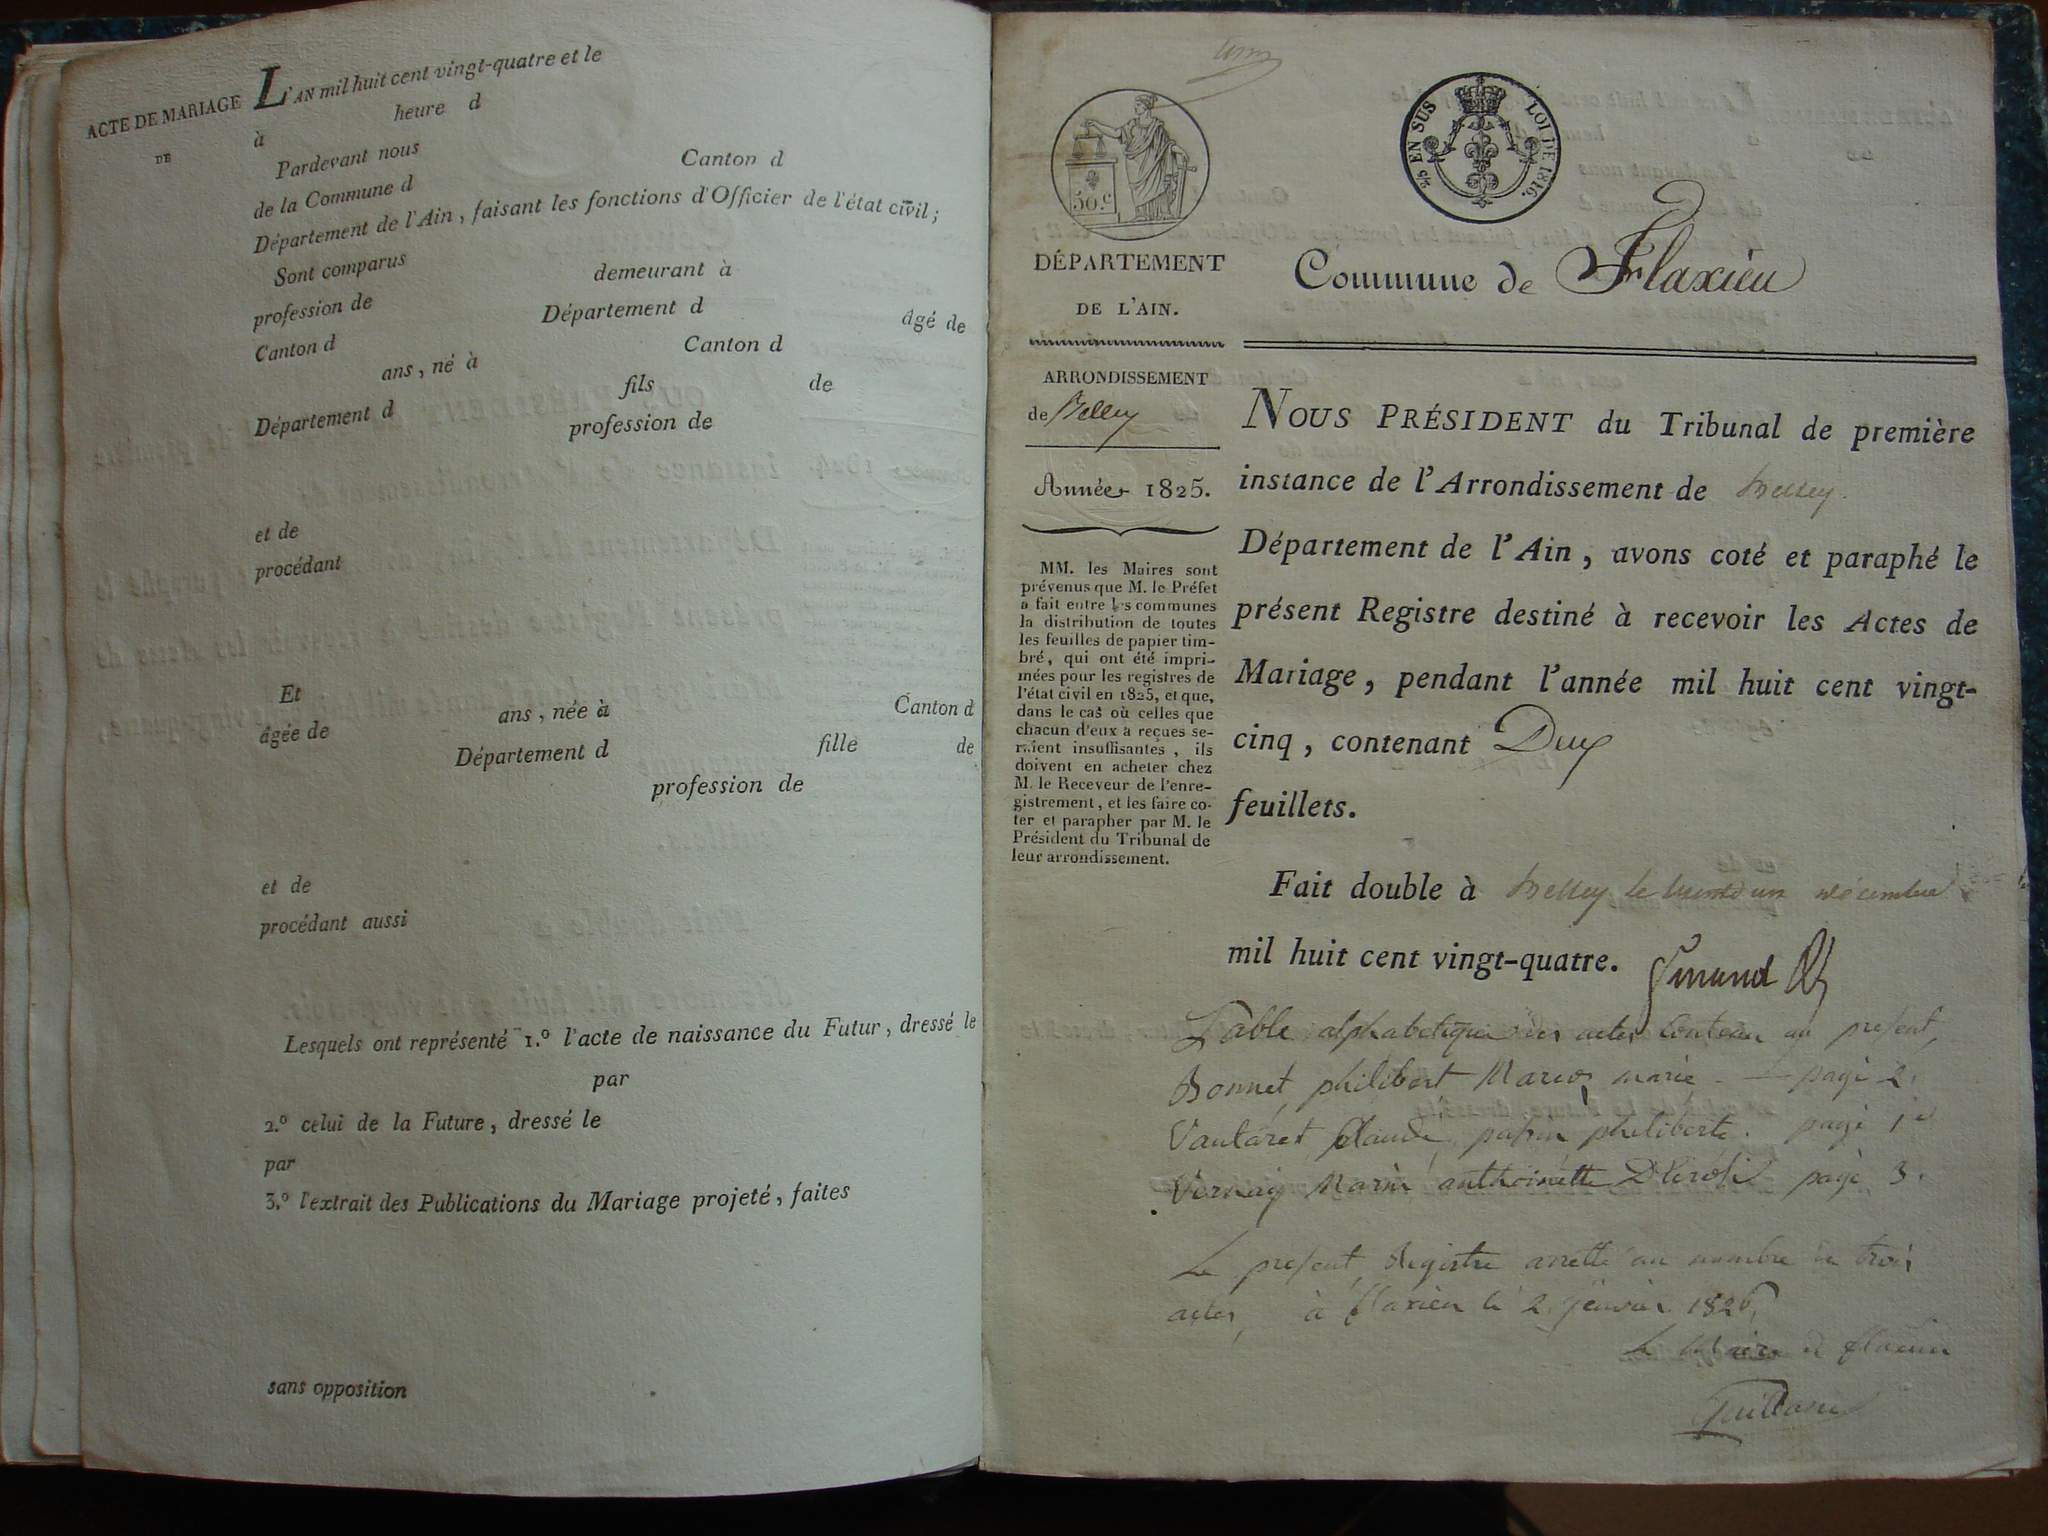 ACTE DE MARIAGE
DE
L'AN mil huit cent vingt-quatre et le
à heure d
Pardevant nous
de la Commune d Canton d
Département de l'Ain, faisant les fonctions d'Officier de l'état civil;
Sont comparus
profession de demeurant à
Canton d Département d âgé de
ans, né à Canton d
Département d fils de
profession de
et de
procédant
Et
âgée de ans, née à Canton d
Département d fille de
profession de
et de
procédant aussi
Lesquels ont représenté 1.º l'acte de naissance du Futur, dressé le
par
2.º celui de la Future, dressé le
par
3.º l'extrait des Publications du Mariage projeté, faites
sans opposition
50.c
EN SUS LOI DE 1816.
DÉPARTEMENT
DE L'AIN.
ARRONDISSEMENT
de Belley
Année 1825.
MM. les Maires sont
prévenus que M. le Préfet
a fait entre les communes
la distribution de toutes
les feuilles de papier tim-
bré, qui ont été impri-
mées pour les registres de
l'état civil en 1825, et que,
dans le cas où celles que
chacun d'eux a reçues se-
raient insuffisantes, ils
doivent en acheter chez
M. le Receveur de l'enre-
gistrement, et les faire co-
ter et parapher par M. le
Président du Tribunal de
leur arrondissement.
Commune de Flaxieu
NOUS PRÉSIDENT du Tribunal de première
instance de l'Arrondissement de Belley.
Département de l'Ain, avons coté et paraphé le
présent Registre destiné à recevoir les Actes de
Mariage, pendant l'année mil huit cent vingt-
cinq, contenant Deux
feuillets.
Fait double à Belley le décembre
mil huit cent vingt-quatre.
Table alphabetique des actes contenu au present,
Bonnet philibert marie page 2.
Vautaret Claude, philiberte. page 1
Vernay Marie anthoinette page 3.
Le present Registre arretté au nombre de trois
actes, à flaxieu le 2 janvier 1826,
Le Maire de flaxieu